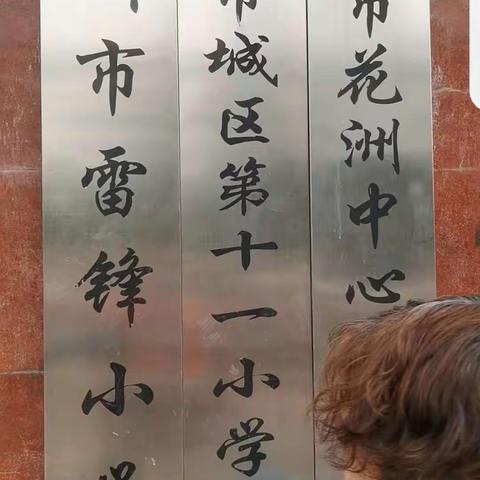 市雷锋小学
市城区第十一小学
市花洲中心